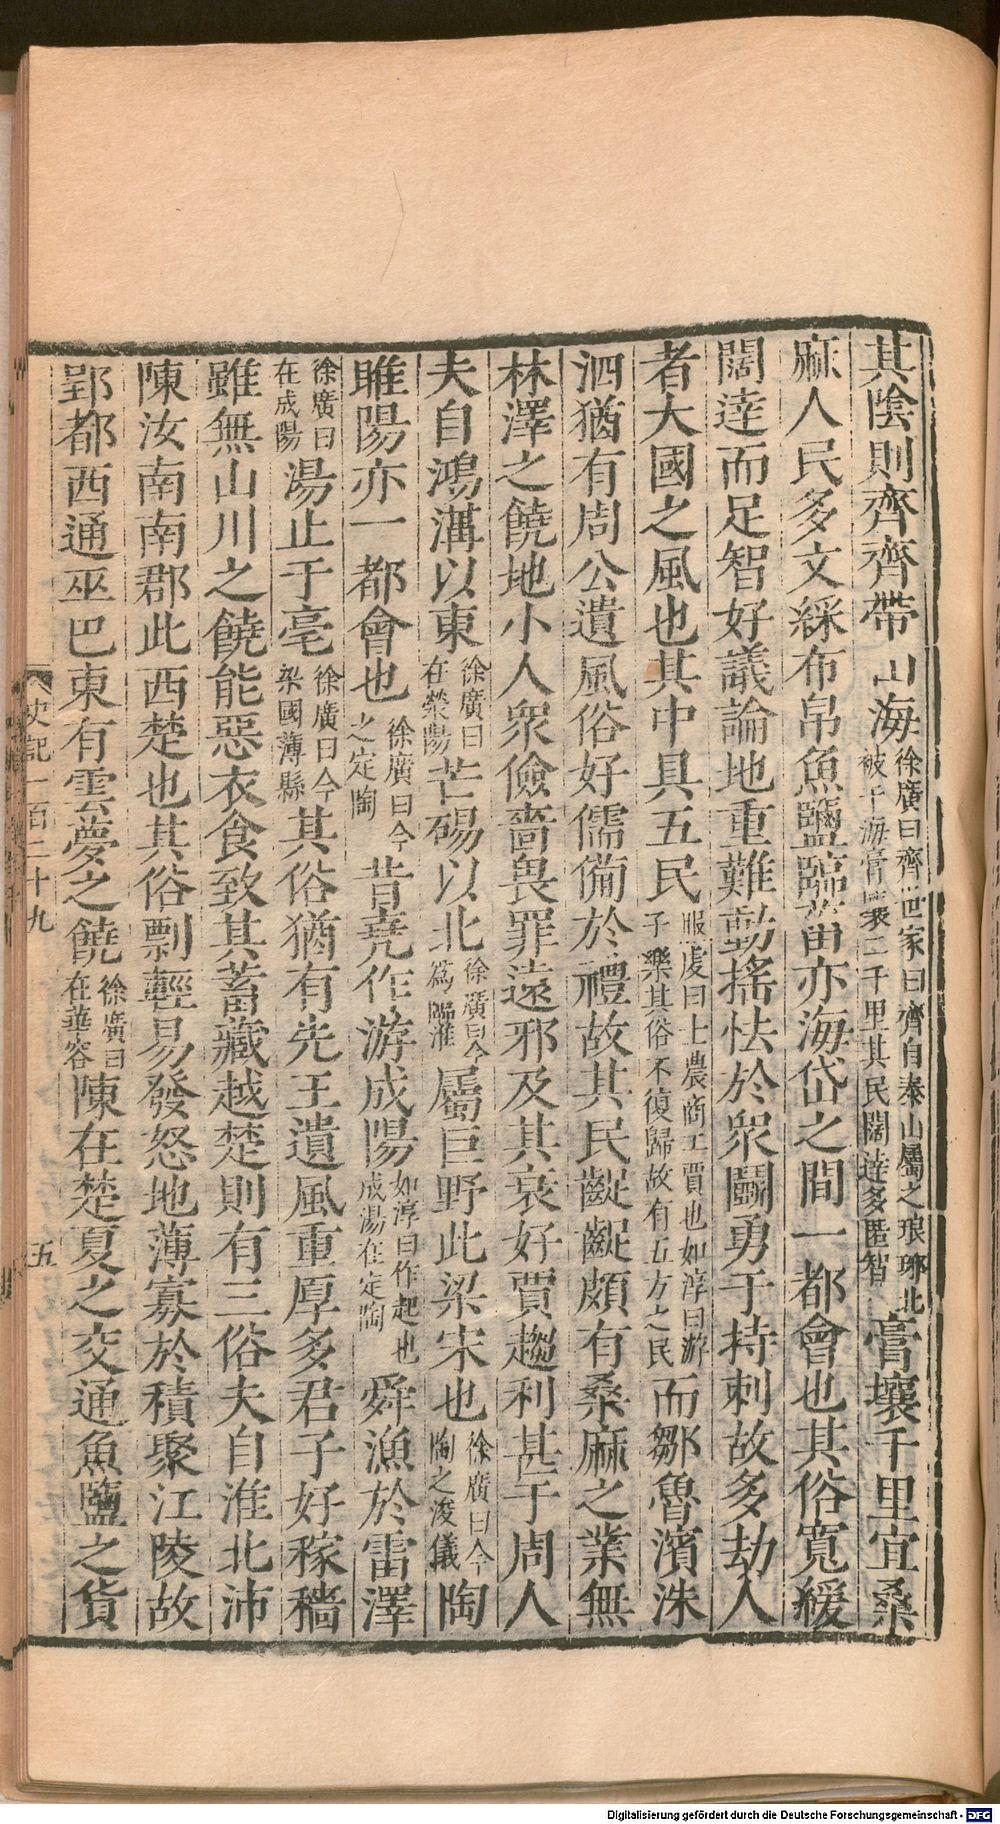 其陰則齊齊帶山海徐廣曰齊世家曰齊自泰山屬之琅琊北被于海膏壤二千里其民闊達多匿智膏壤千里宜桑
麻人民多文綵布帛魚鹽臨菑亦海岱之間一都會也其俗寬緩
闊達而足智好議論地重難動搖怯於衆鬭勇于持刺故多劫人
者大國之風也其中具五民服虔曰士農商工賈也如淳曰游子樂其俗不復歸故有五方之民而鄒魯濱洙
泗猶有周公遺風俗好儒備於禮故其民齪齪頗有桑麻之業無
林澤之饒地小人衆儉嗇畏罪遠邪及其衰好賈趨利甚于周人
夫自鴻溝以東徐廣曰在滎陽芒碭以北徐廣曰今為臨淮屬巨野此梁宋也徐廣曰今陶之浚儀陶
睢陽亦一都會也徐廣曰今之定陶昔堯作游成陽如淳曰作起也成湯在定陶舜漁於雷澤
徐廣曰在成陽湯止于亳徐廣曰今梁國薄縣其俗猶有先王遺風重厚多君子好稼穡
雖無山川之饒能惡衣食致其蓄藏越楚則有三俗夫自淮北沛
陳汝南南郡此西楚也其俗剽輕易發怒地薄寡於積聚江陵故
郢都西通巫巴東有雲夢之饒徐廣曰在華容陳在楚夏之交通魚鹽之貨
史記一百二十九
五
Digitalisierung gefördert durch die Deutsche Forschungsgemeinschaft - DFG